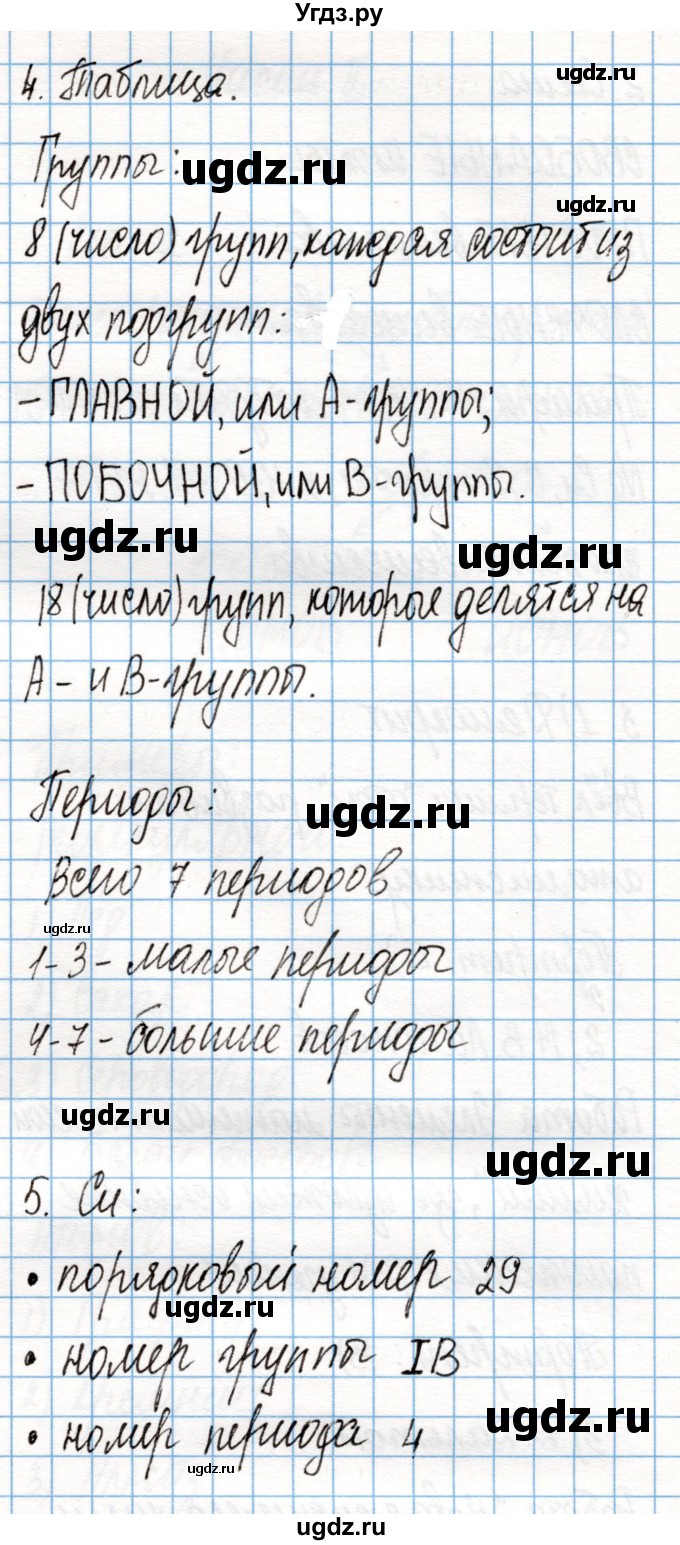 Угдз.ру
ugdz.ru
4. Таблица.
Группы:
ugdz.ru
ugdz.ru
8 (число) групп, каждая состоит из
двух подгрупп:
- ГЛАВНОЙ, или А-группы;
- ПОБОЧНОЙ, или В-группы.
ugdz.ru
ugdz.ru
18 (число) групп, которые делятся на
А- и В-группы.
Периоды:
ugdz.ru
Всего 7 периодов
ugdz.ru
1-3 - малые периоды
4-7 - большие периоды
ugdz.ru
ugdz.ru
5. Cu:
• порядковый номер 29
ugdz.ru
• номер группы IB
ugdz.ru
• номер периода 4
ugdz.ru
ugdz.ru